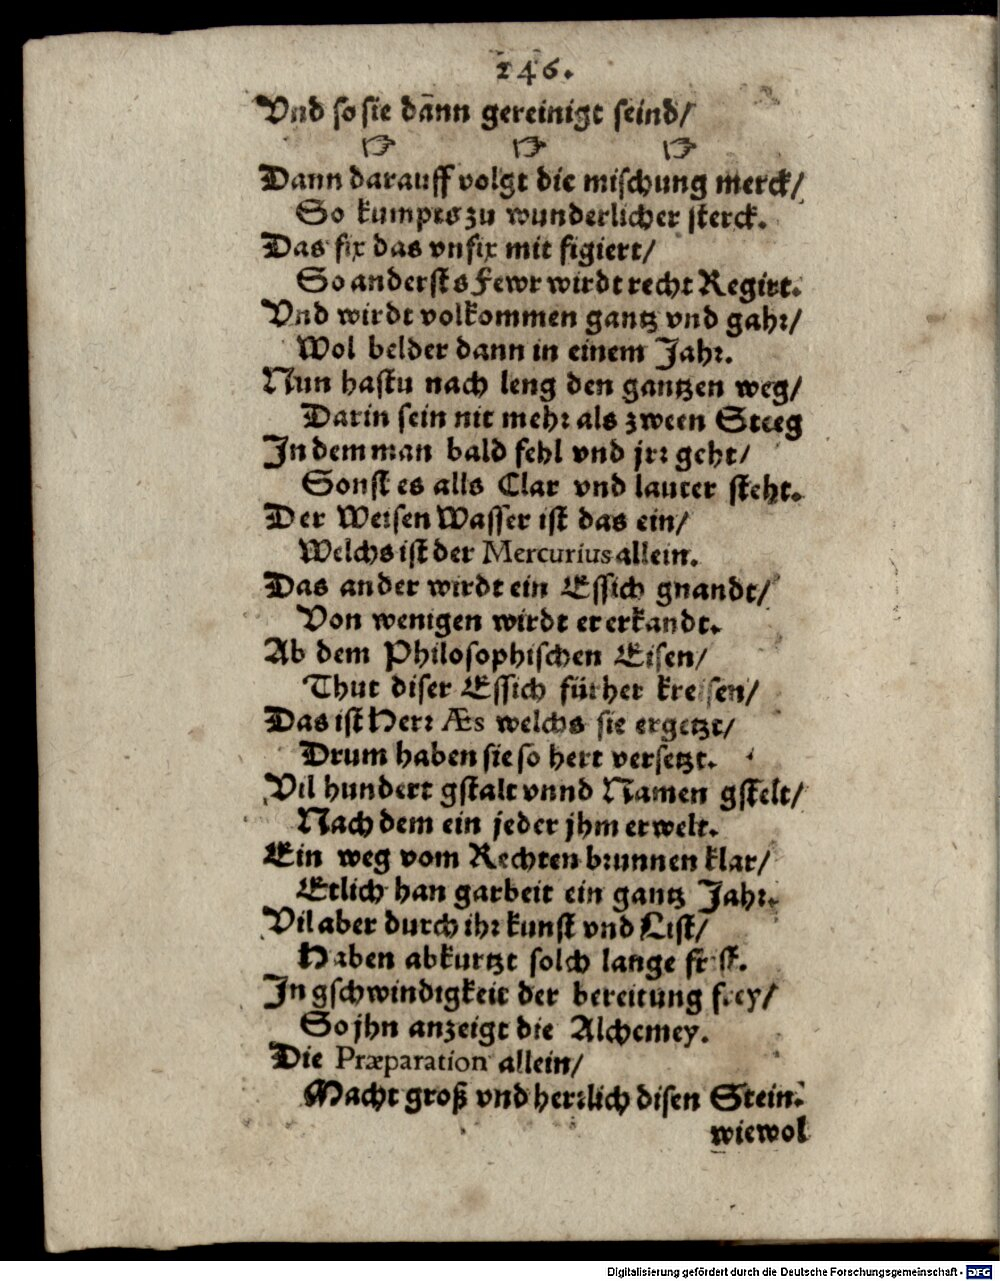 246.
Vnd so sie dann gereinigt seind/
☞ ☞ ☞
Dann darauff volgt die mischung merck/
So kumpts zu wunderlicher sterck.
Das fix das vnfix mit figiert/
So anderst s Fewr wirdt recht Regirt.
Vnd wirdt volkommen gantz vnd gahr/
Wol belder dann in einem Jahr.
Nun hastu nach leng den gantzen weg/
Darin sein nit mehr als zween Steeg
In dem man bald fehl vnd jrr geht/
Sonst es alls Clar vnd lauter steht.
Der Weisen Wasser ist das ein/
Welchs ist der Mercurius allein.
Das ander wirdt ein Essich gnandt/
Von wenigen wirdt er erkandt.
Ab dem Philosophischen Eisen/
Thut diser Essich fürher kreisen/
Das ist Herr Æs welchs sie ergetzt/
Drum haben sie so hert versetzt.
Vil hundert gstalt vnnd Namen gstelt/
Nach dem ein jeder jhm erwelt.
Ein weg vom Rechten brunnen klar/
Etlich han garbeit ein gantz Jahr.
Vil aber durch ihr kunst vnd List/
Haben abkurtzt solch lange frist.
In gschwindigkeit der bereitung frey/
So jhn anzeigt die Alchemey.
Die Præparation allein/
Macht groß vnd herrlich disen Stein.
wiewol
Digitalisierung gefördert durch die Deutsche Forschungsgemeinschaft - DFG